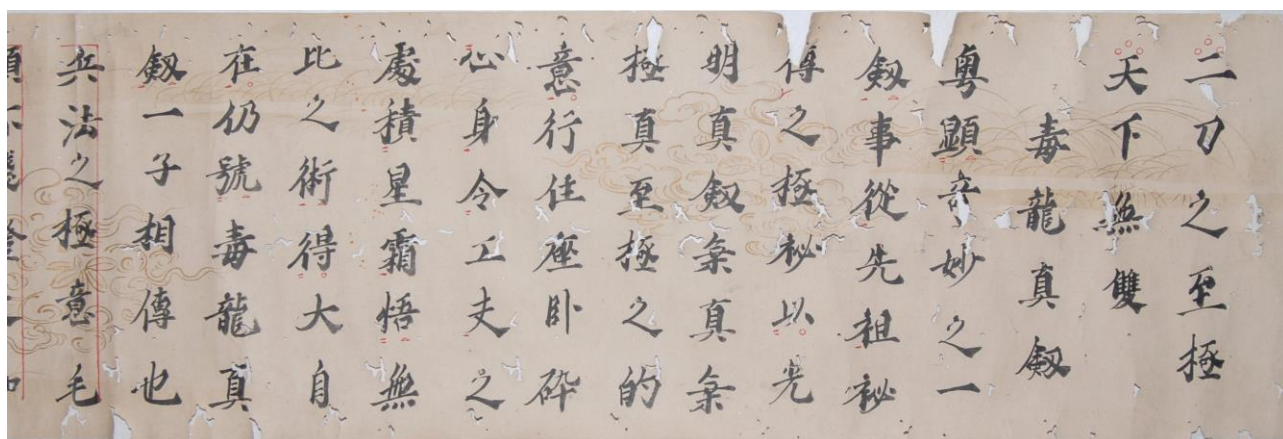 二刀之至極
天下無雙
毒龍真劔
粤顯奇妙之一
劔事從先祖秘
傳之極秘以光
明真劔柒真柒
極真至極之的
意行住座卧砕
心身令工夫之
處積星霜悟無
比之術得大自
在仍號毒龍真
劔一子相傳也
兵法之極意毛